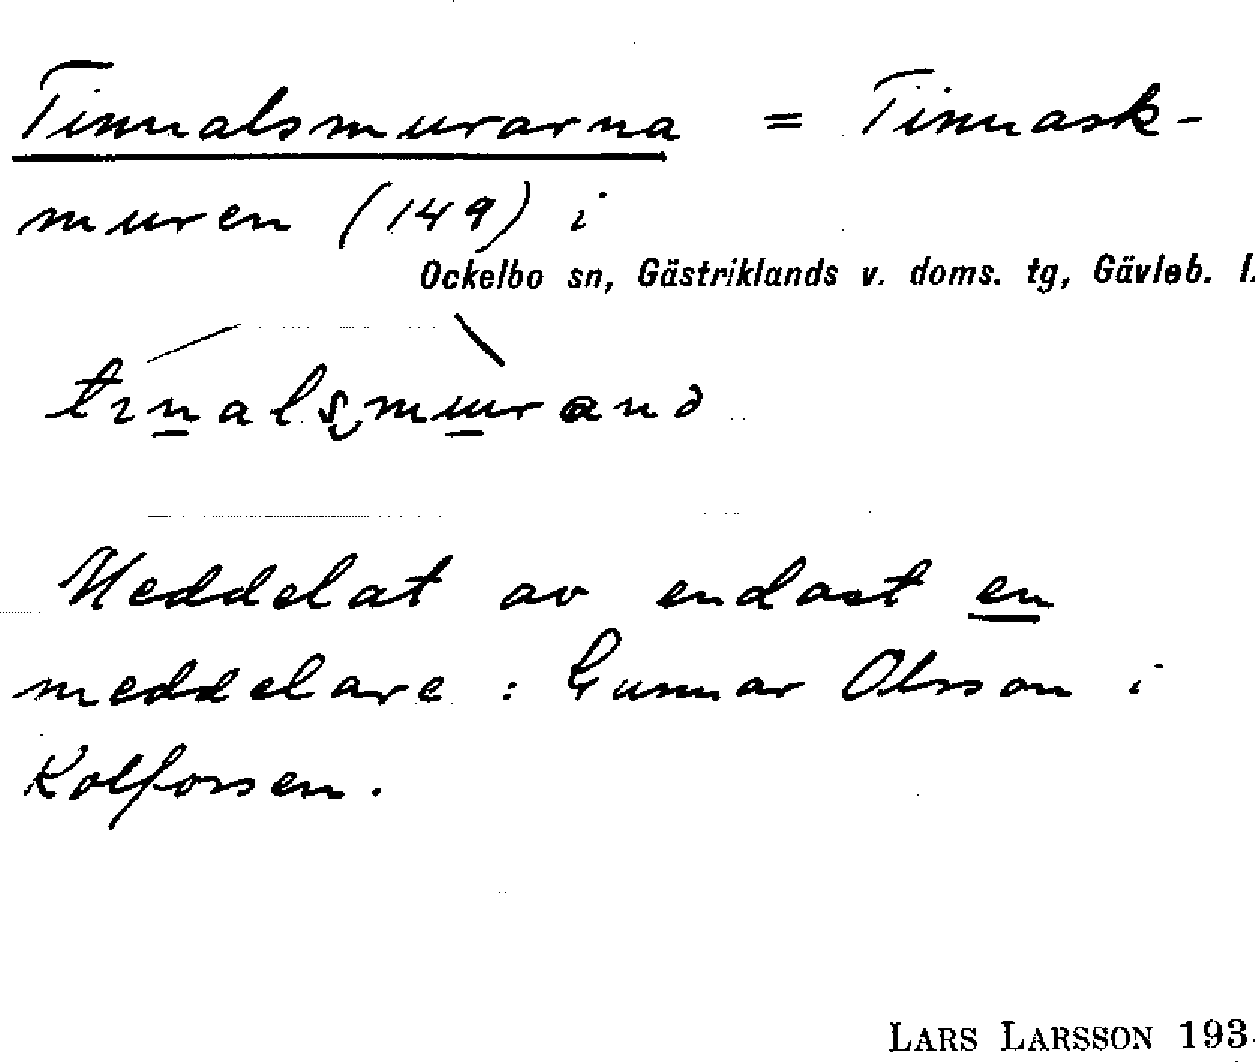 Tinnalsmurarna = Tinnask-
muren (149) i
Ockelbo sn, Gästriklands v. doms. tg, Gävleb. l.
Meddelat av endast en
meddelare : Gunnar Olsson i
Kolforsen.
LARS LARSSON 193